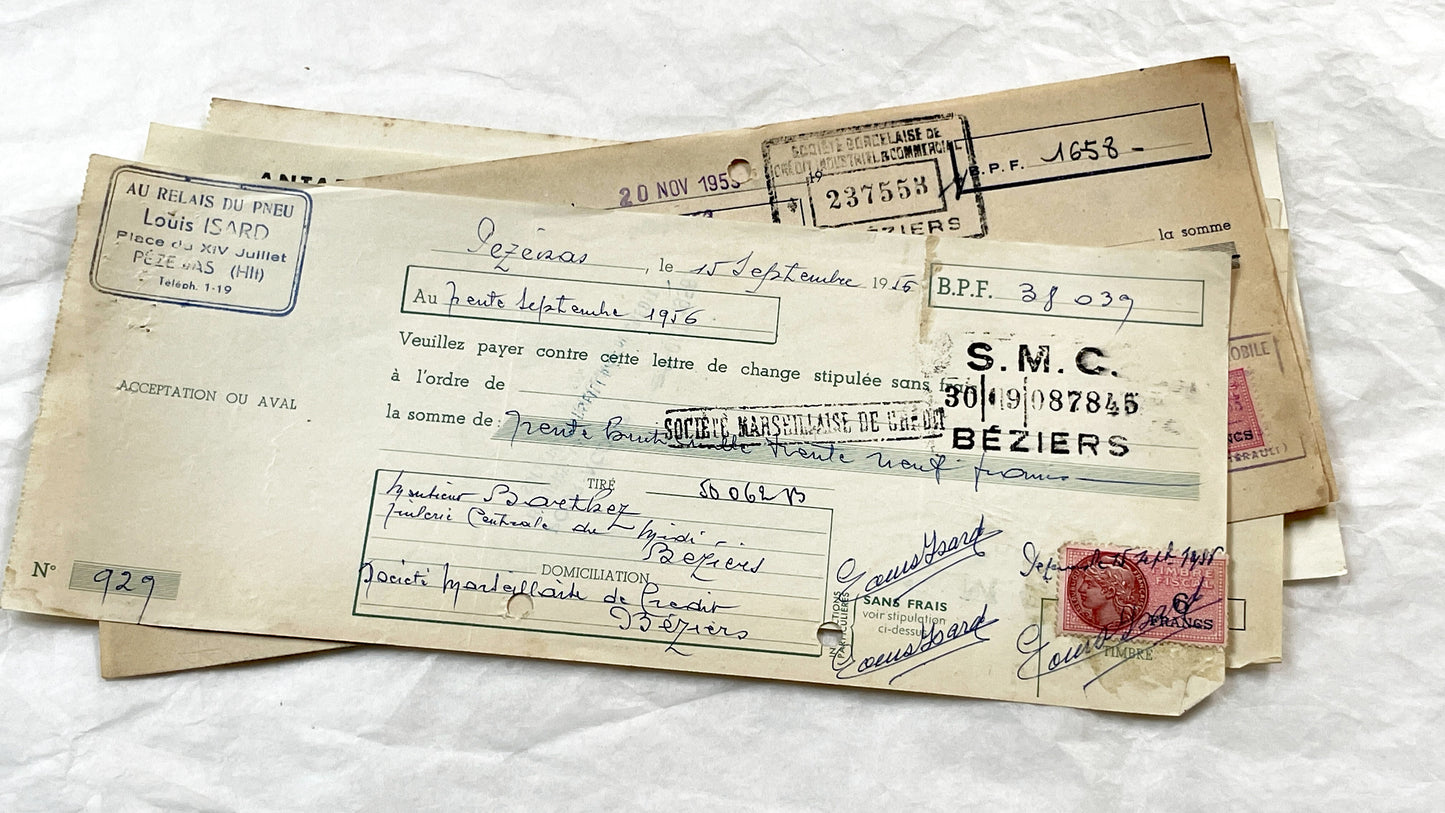 AU RELAIS DU PNEU
Louis ISARD
Place du XIV Juillet
PÉZENAS (Hlt)
Téléph. 1-19
ANTAR
20 NOV 1953
SOCIÉTÉ BORDELAISE DE
CRÉDIT INDUSTRIEL & COMMERCIAL
19
237553
BÉZIERS
B.P.F. 1658 -
la somme
Pézénas, le 15 Septembre 1956
B.P.F. 38 039
Au trente Septembre 1956
Veuillez payer contre cette lettre de change stipulée sans frais
à l'ordre de
SOCIÉTÉ MARSEILLAISE DE CRÉDIT
S.M.C.
30 09 087845
BÉZIERS
la somme de: Trente huit mille trente neuf francs
ACCEPTATION OU AVAL
TIRÉ
50 062 B
Monsieur Barthez
Tuilerie Centrale du Midi
Béziers
DOMICILIATION
Société Marseillaise de Crédit
Béziers
Nº 929
Louis Isard
SANS FRAIS
voir stipulation
ci-dessus
Louis Isard
Pézenas le 15 Sept 1956
FISCAL
6F
FRANCS
Louis Isard
TIMBRE
OBILE
NCS
ÉRAULT)